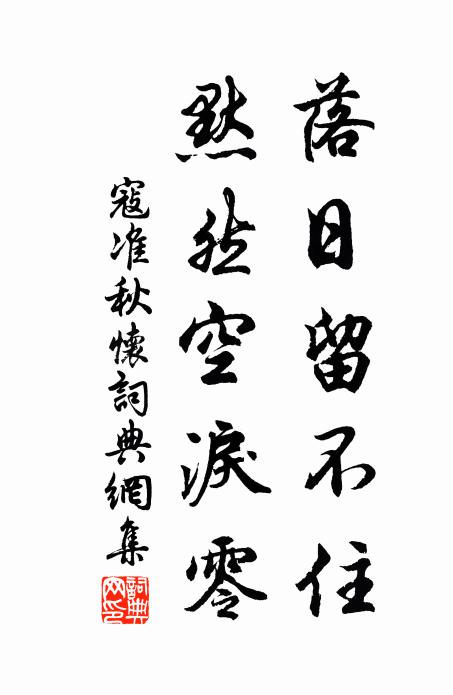 落日留不住
黙然空淚零
寇准秋懷詞典網集
詞典
网印